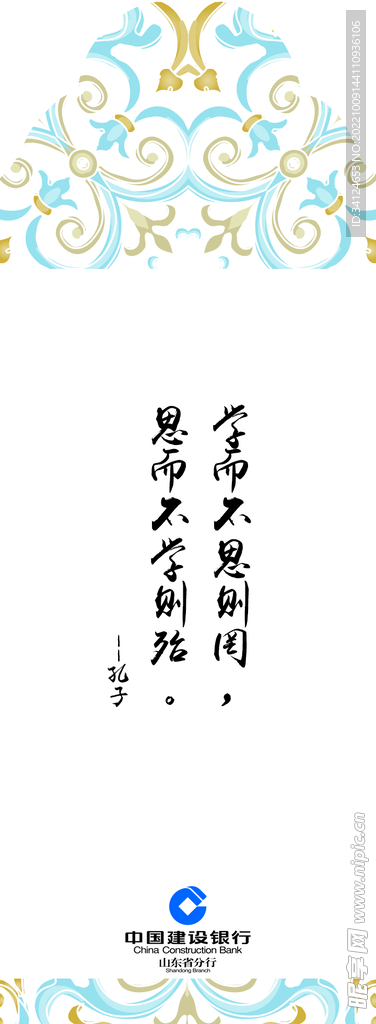 学而不思则罔，
思而不学则殆。
——孔子
中国建设银行
China Construction Bank
山东省分行
Shandong Branch
ID:34124653 NO:20221009144110936106
昵享网 www.nipic.cn